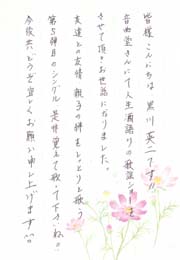 皆様こんにちは 黒川英二です!!
音曲堂さんにて人生酒語りの歌謡ショーを
させて頂きお世話になりました。
友達との友情 親子の絆をしっとりと歌う
第5弾目のシングル 是非覚えて歌って下さいね。
今後共どうぞ宜しくお願い申し上げます^^